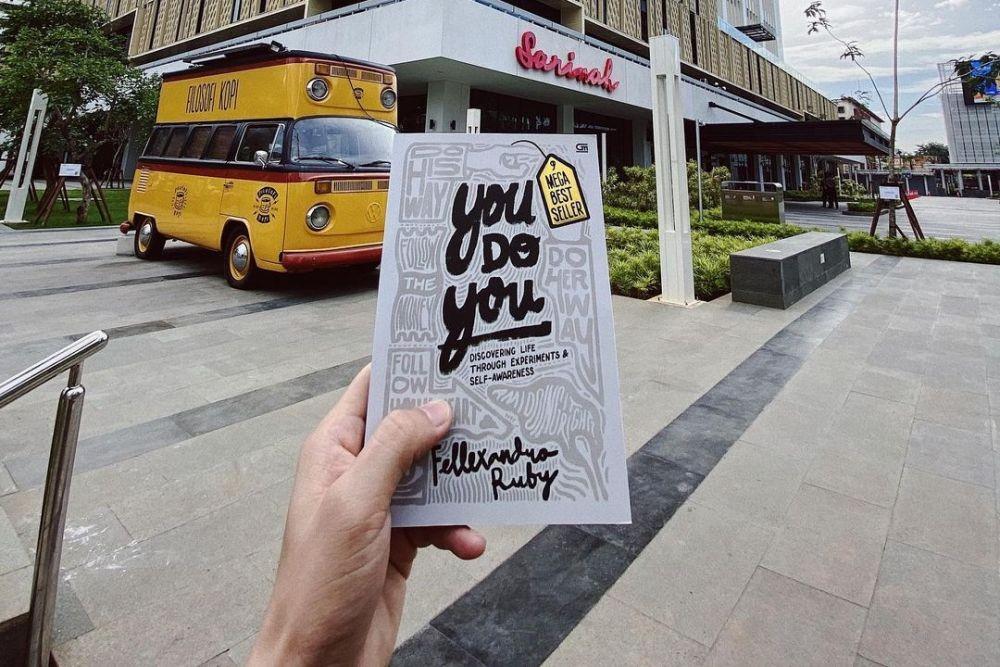 FILOSOFI KOPI
Sarinah
GM
MEGA
BEST
SELLER
YOU
DO
YOU
DISCOVERING LIFE
THROUGH EXPERIMENTS &
SELF-AWARENESS
DO
HIS
WAY
FOLLOW
THE
MONEY
FOLL
OW
DO
HER
WAY
AM I DOING RIGHT?
Fellexandro
Ruby